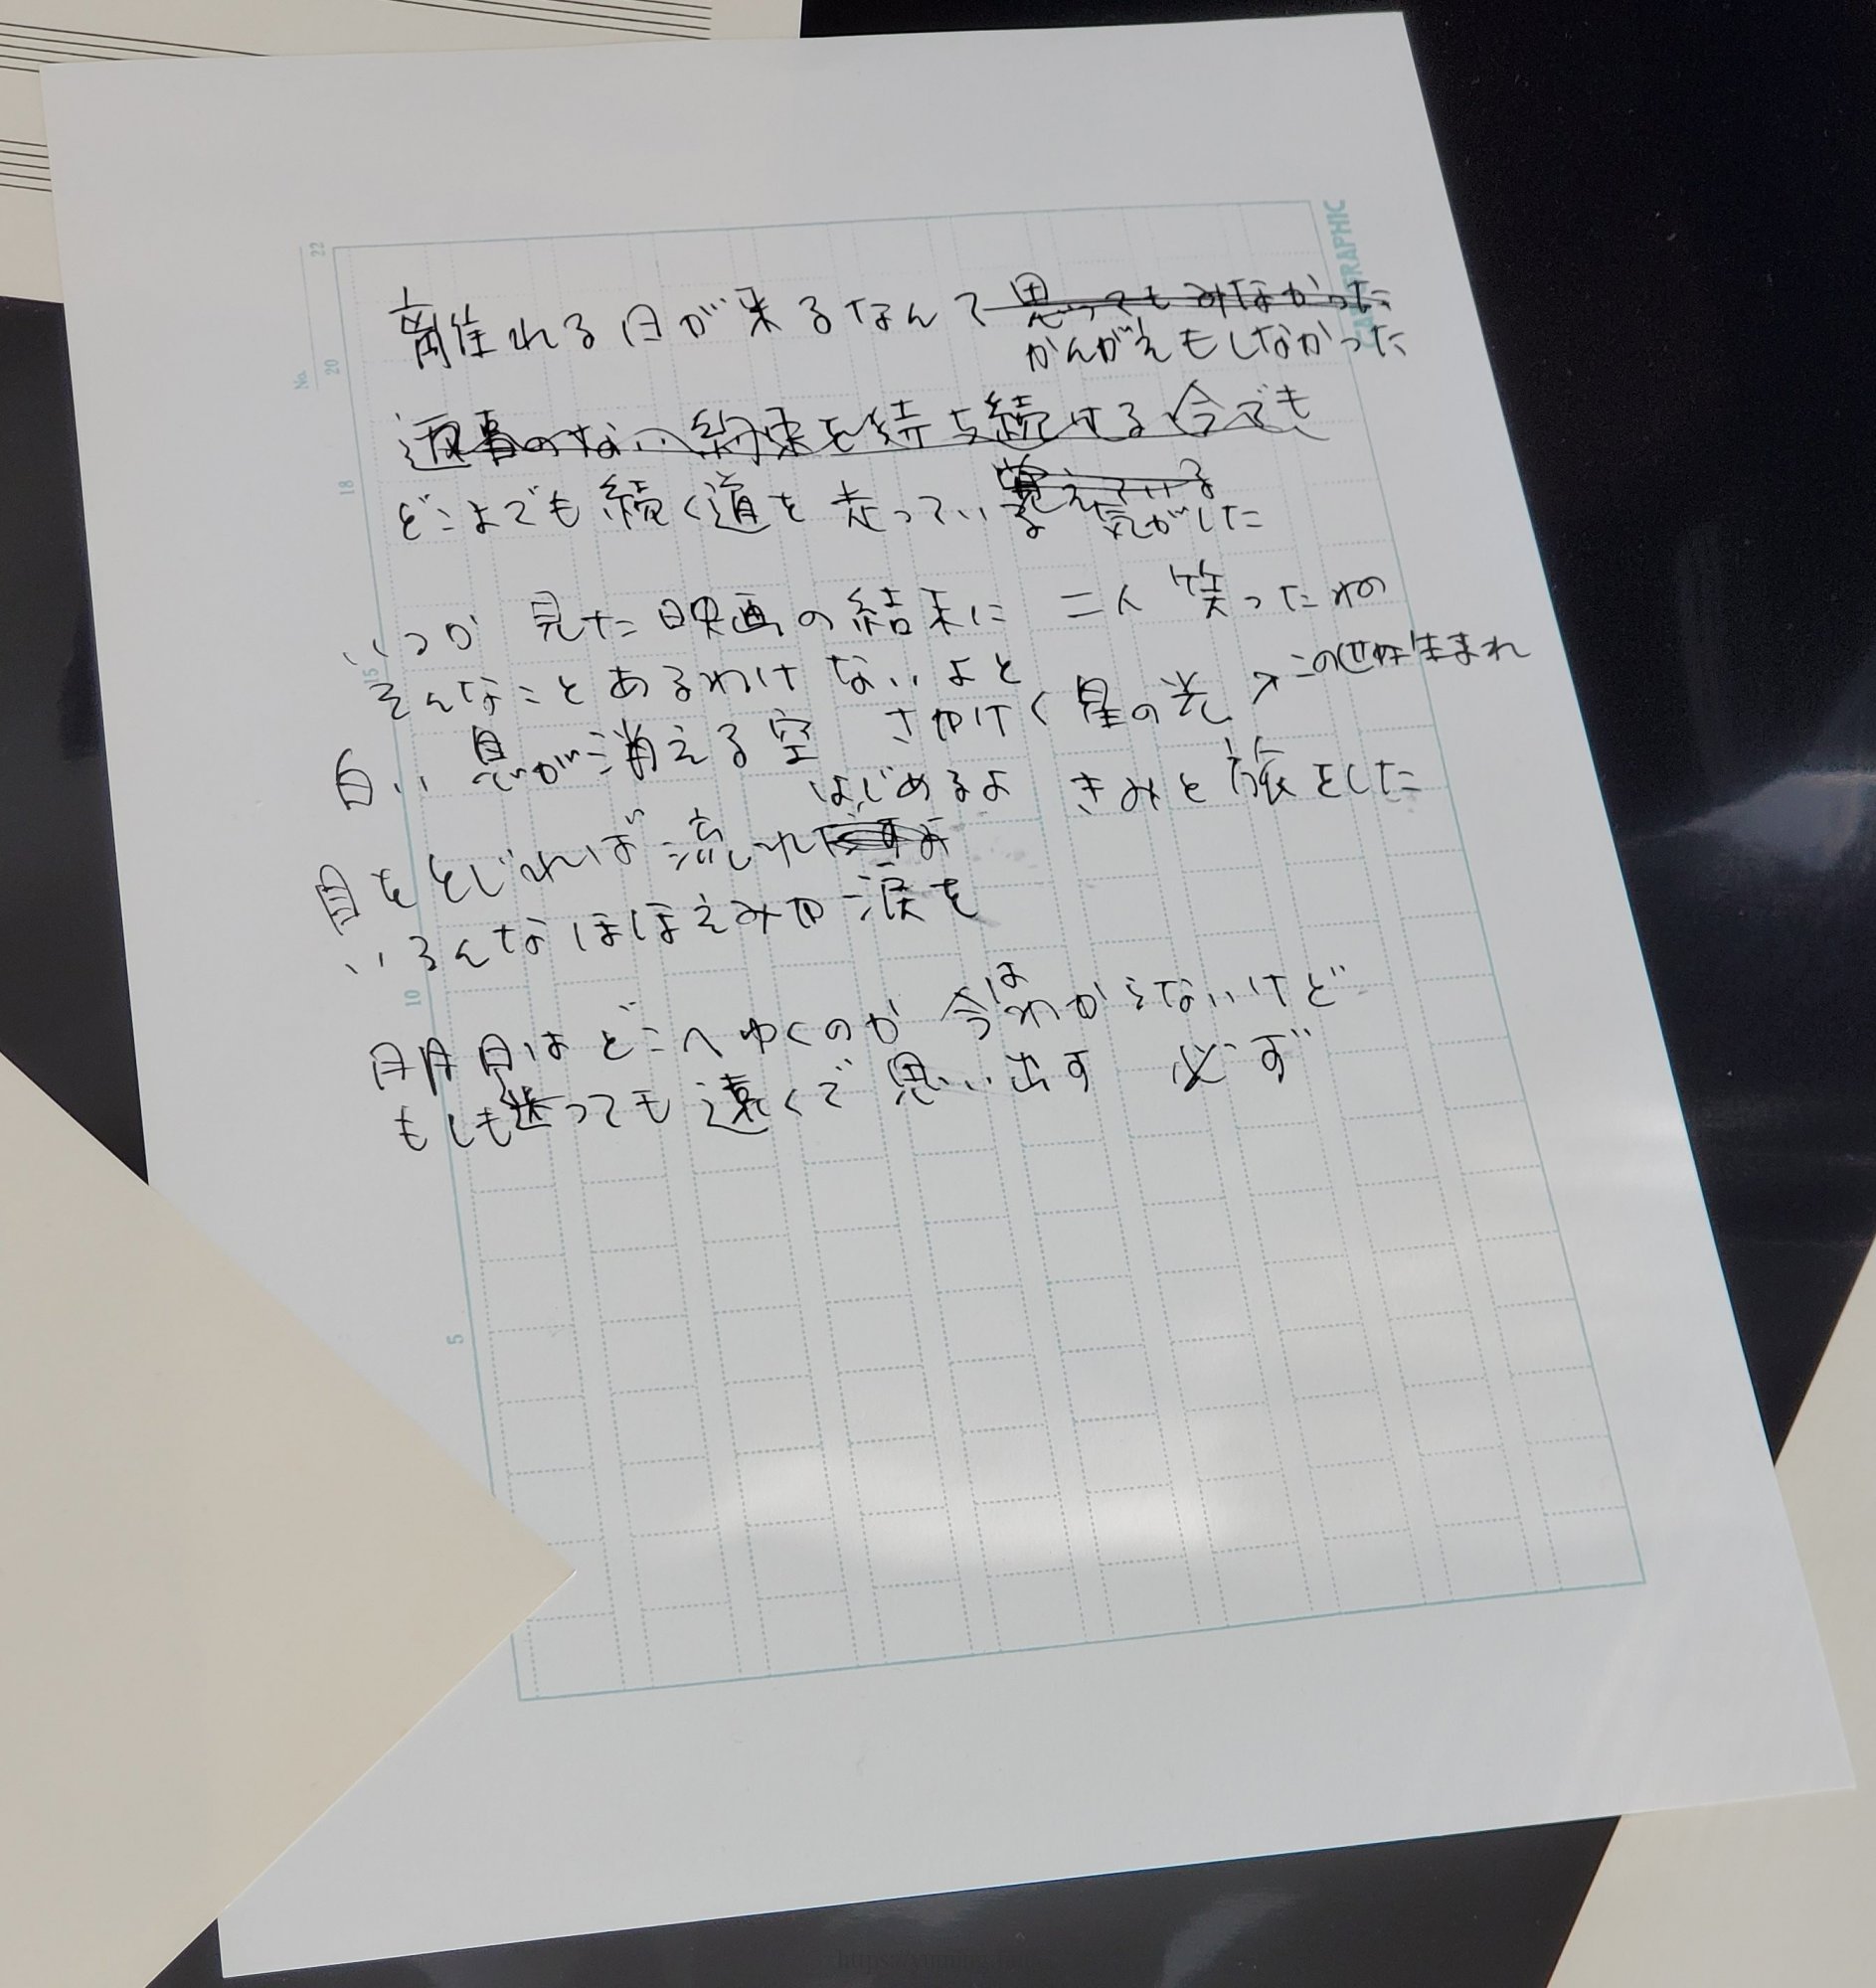 離れる日が来るなんて思ってもみなかった
かんがえもしなかった
返事のない約束を待ち続ける今でも
覚えている
どこまでも続く道を走っている気がした
いつか 見た映画の結末に 二人笑ったね
そんなことあるわけないよと
この世に生まれ
白い 息が消える空 さやけく星の光
はじめるよ きみと旅をした
目をとじれば 流れ
いろんなほほえみや涙を
明日はどこへゆくのか 今はわからないけど
もしも迷っても遠くで思い出す 必ず
CARGRAPHIC
No.
22
20
18
15
10
5